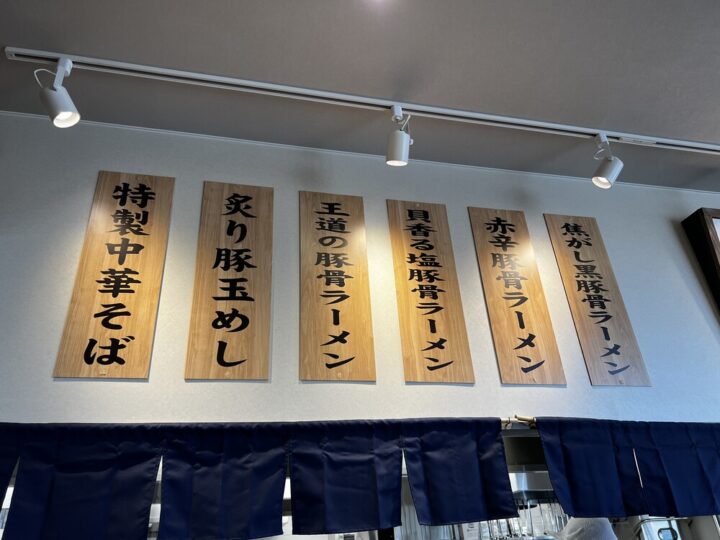 焦がし黒豚骨ラーメン
赤辛豚骨ラーメン
貝香る塩豚骨ラーメン
王道の豚骨ラーメン
炙り豚玉めし
特製中華そば